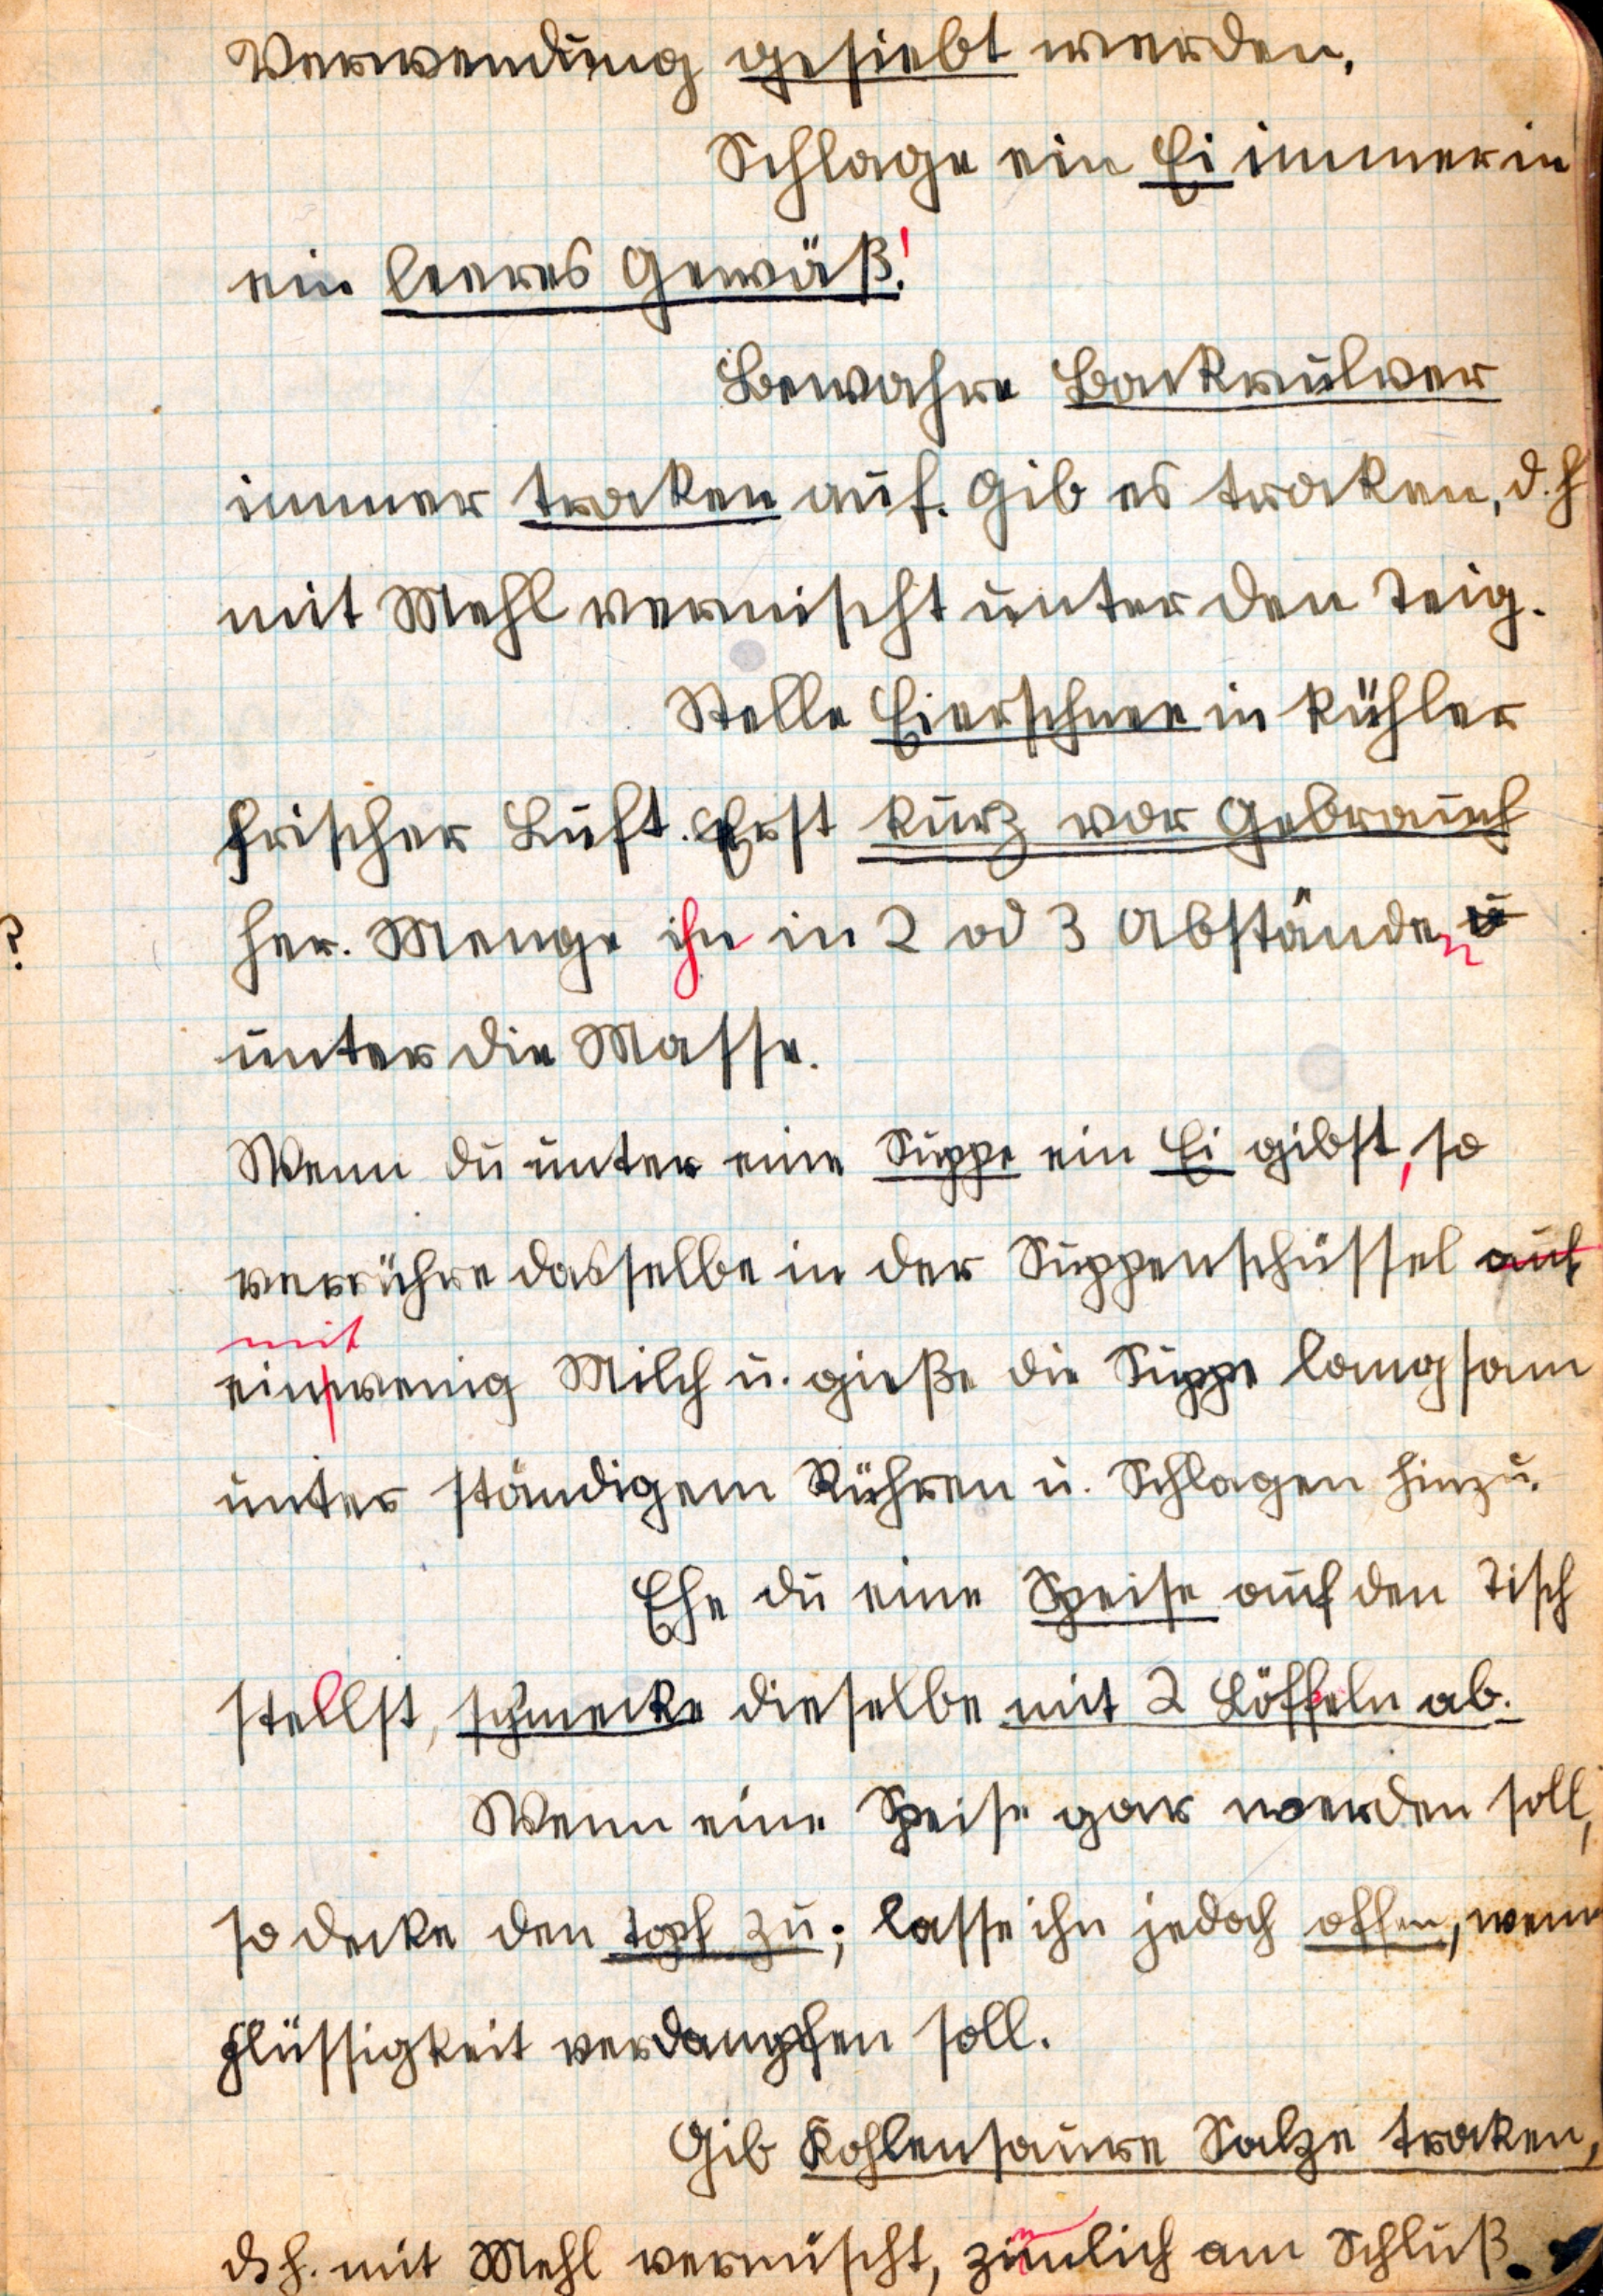 Verwendung gesiebt werden.
Schlage ein Ei immer in
ein leeres Gewäß!
Bewahre Backpulver
immer trocken auf. Gib es trocken, d.h
mit Mehl vermischt unter den Teig.
Stelle Eierschnee in kühler
frischer Luft. Erst kurz vor Gebrauch
her. Menge ihn in 2 od 3 Abständen u
?
unter die Masse.
Wenn du unter eine Suppe ein Ei gibst, so
verrühre dasselbe in der Suppenschüssel auf
mit
ein wenig Milch u. gieße die Suppe langsam
unter ständigem Rühren u. Schlagen hinzu.
Ehe du eine Speise auf den Tisch
stellst, schmecke dieselbe mit 2 Löffeln ab.
Wenn eine Speise gar werden soll,
so decke den Topf zu; lasse ihn jedoch offen, wenn
Flüssigkeit verdampfen soll.
Gib Kohlensaure Salze trocken,
d.h. mit Mehl vermischt, am Schluß.